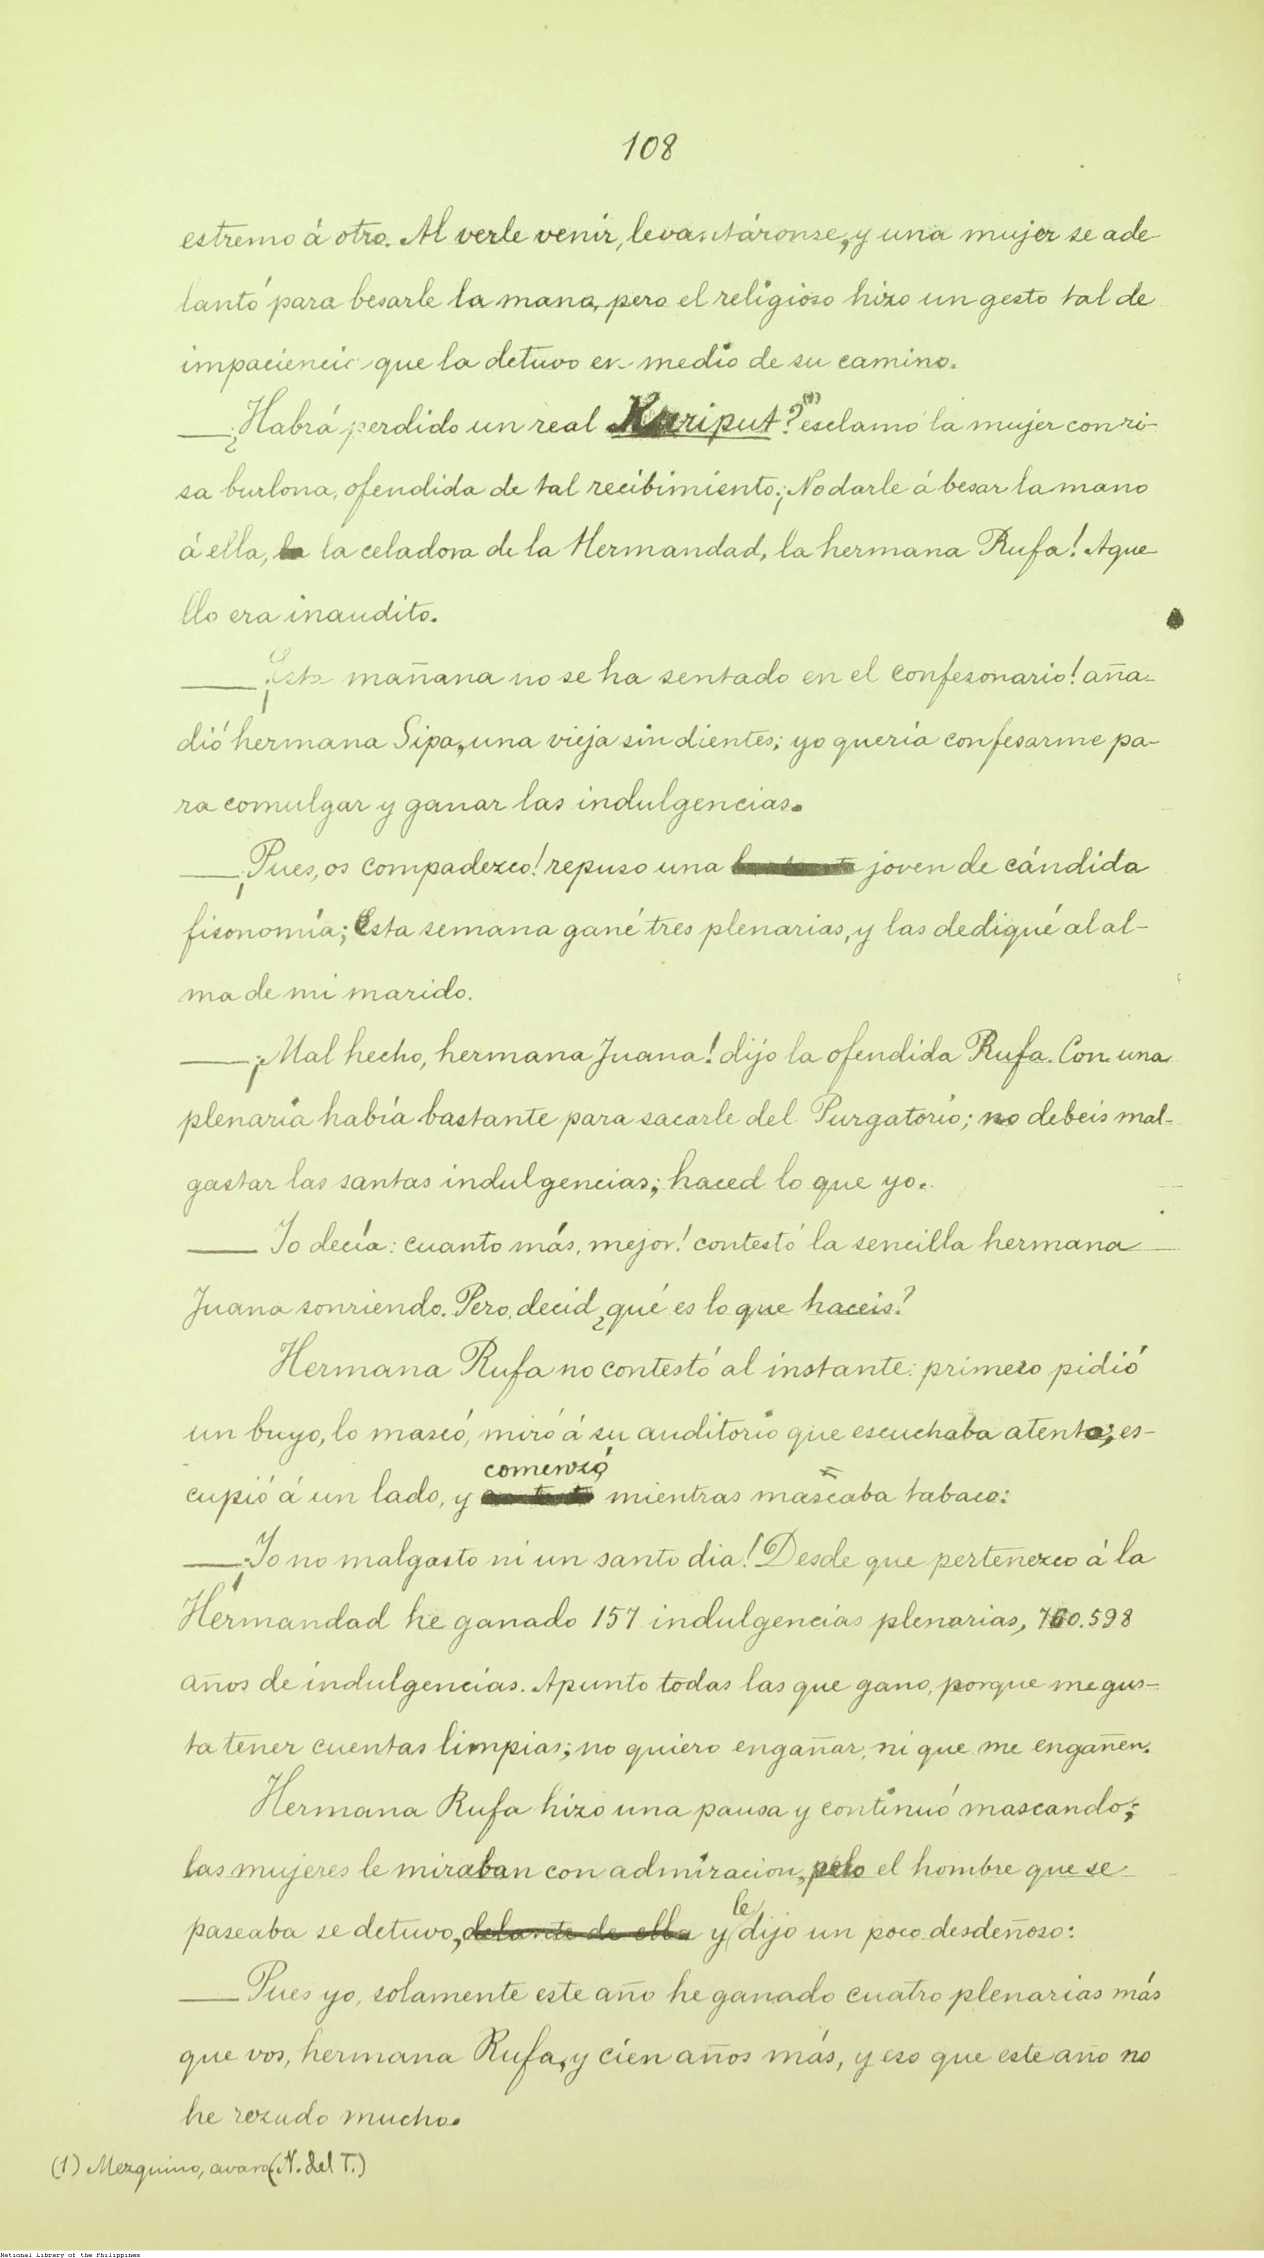 108
estremo á otro. Al verle venir, levantáronse, y una mujer se ade-
lantó para besarle la mano, pero el religioso hizo un gesto tal de
impaciencia que la detuvo en medio de su camino.
—¿Habrá perdido un real Kuriput?(1) esclamó la mujer con ri-
sa burlona, ofendida de tal recibimiento. ¡No darle á besar la mano
á ella, la la celadora de la Hermandad, la hermana Rufa! Aque-
llo era inaudito.
—¡Esta mañana no se ha sentado en el confesonario! aña-
dió hermana Sipa, una vieja sin dientes; yo quería confesarme pa-
ra comulgar y ganar las indulgencias.
—¡Pues, os compadezco! repuso una joven de cándida
fisonomía; Esta semana gané tres plenarias, y las dediqué al al-
ma de mi marido.
—¡Mal hecho, hermana Juana! dijo la ofendida Rufa. Con una
plenaria había bastante para sacarle del Purgatorio; no debeis mal-
gastar las santas indulgencias; haced lo que yo.
—Yo decía: cuanto más, mejor! contestó la sencilla hermana
Juana sonriendo. Pero, decid ¿qué es lo que haceis?
Hermana Rufa no contestó al instante: primero pidió
un buyo, lo mascó, miró á su auditorio que escuchaba atento; es-
cupió á un lado, y comenzó mientras mascaba tabaco:
—¡Yo no malgasto ni un santo dia! Desde que pertenezco á la
Hermandad he ganado 157 indulgencias plenarias, 760.598
años de indulgencias. Apunto todas las que gano, porque me gus-
ta tener cuentas limpias; no quiero engañar, ni que me engañen.
Hermana Rufa hizo una pausa y continuó mascando;
las mujeres le miraban con admiracion, pero el hombre que se
paseaba se detuvo, delante de ella y le dijo un poco desdeñoso:
—Pues yo, solamente este año he ganado cuatro plenarias más
que vos, hermana Rufa, y cien años más, y eso que este año no
he rezado mucho.
(1) Mezquino, avaro (N. del T.)
National Library of the Philippines